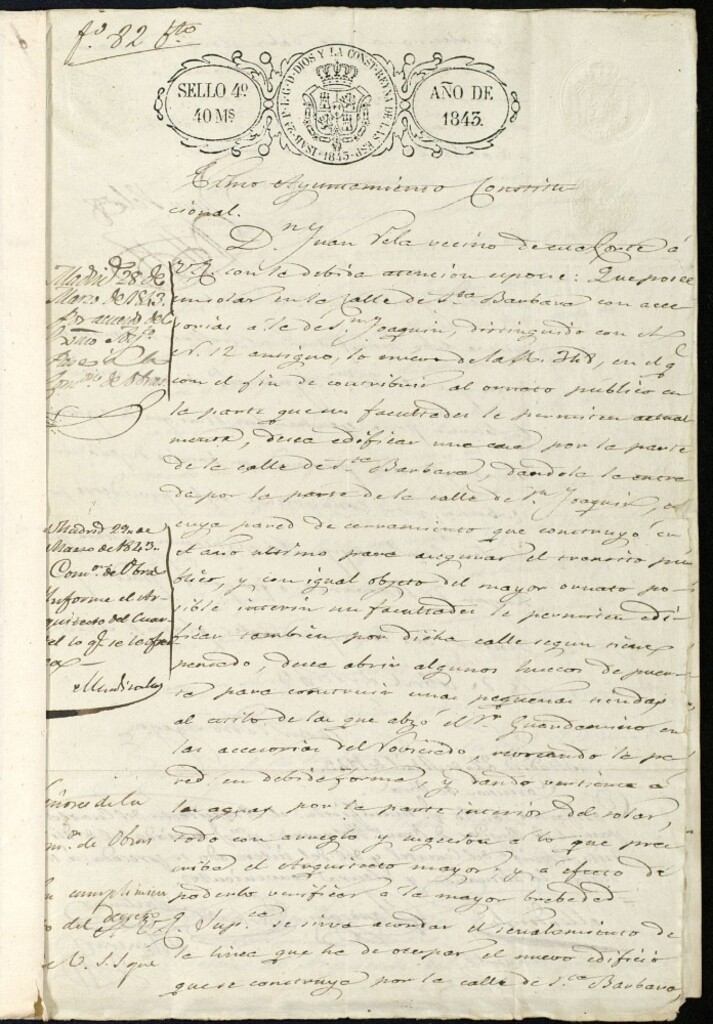 fº 82 
SELLO 4º.
40 Ms
ISAB. 2ª P. L. G. D. DIOS Y LA CONST. REYNA DE LAS ESP. 1843.
AÑO DE
1843.
Exmo Ayuntamiento Constitu
cional.
D.n Juan Vela vecino de esta Corte á
V.E. con la debida atencion espone: Que posee
un solar en la Calle de S.ta Barbara con acce
sorias á la de S.n Joaquin, distinguido con el
N. 12 antiguo, de la M. 348, en el q.e
con el fin de contribuir al ornato publico en
la parte que sus facultades le permiten actual
mente, desea edificar una casa por la parte
de la calle de S.ta Barbara, dandola la entra
da por la parte de la calle de S.n Joaquin, á
cuya pared de cerramiento que construyó en
el año ultimo para asegurar el transito pu
blico, y con igual objeto del mayor ornato po
sible interin sus facultades le permiten edi
ficar tambien por dicha calle segun tiene
pensado, desea abrir algunos huecos de puer
ta para construir unas pequeñas tiendas
al estilo de las que abrió el S.r Guardamino en
las accesorias del Noviciado, revocando la pa
red en debida forma, y dando vertiente á
las aguas por la parte interior del solar,
todo con arreglo y sugecion á lo que pres
criba el Arquitecto mayor; y á efecto de
poderlo verificar á la mayor brebedad
á V.E. Sup.ca se sirva acordar el señalamiento de
la linea que ha de ocupar el nuevo edificio
que se construya por la calle de S.ta Barbara,
Madrid 28 de
Marzo de 1843.
Por acuerdo del
Exmo
Pase á la
Com.on de Obras
Madrid 29 de
Marzo de 1843.
Com.on de Obras
Informe el Ar
quitecto del Cuar
tel lo q.e se le ofrez
ca
Mendizabal
Señores de la
Com.on de Obras
En cumplimien
to del decreto
de V.S.S. que